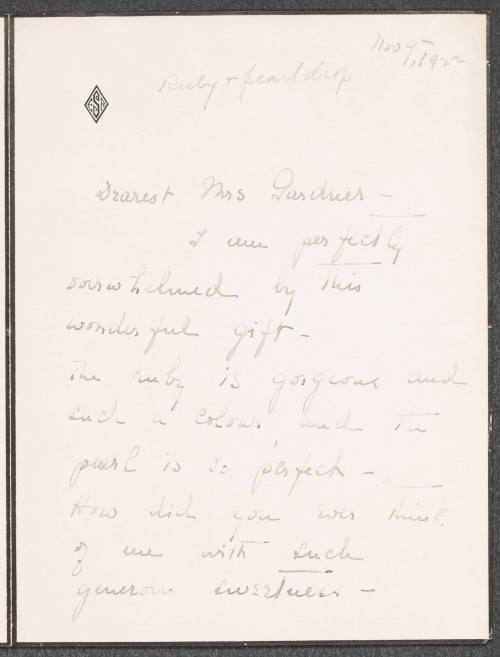 Nov 9, 1922
Ruby + pearl drop
Dearest Mrs Gardner —
I am perfectly
overwhelmed by this
wonderful gift —
The ruby is gorgeous and
such a colour, and the
pearl is so perfect —
How did you ever think
of me with such
generous sweetness —